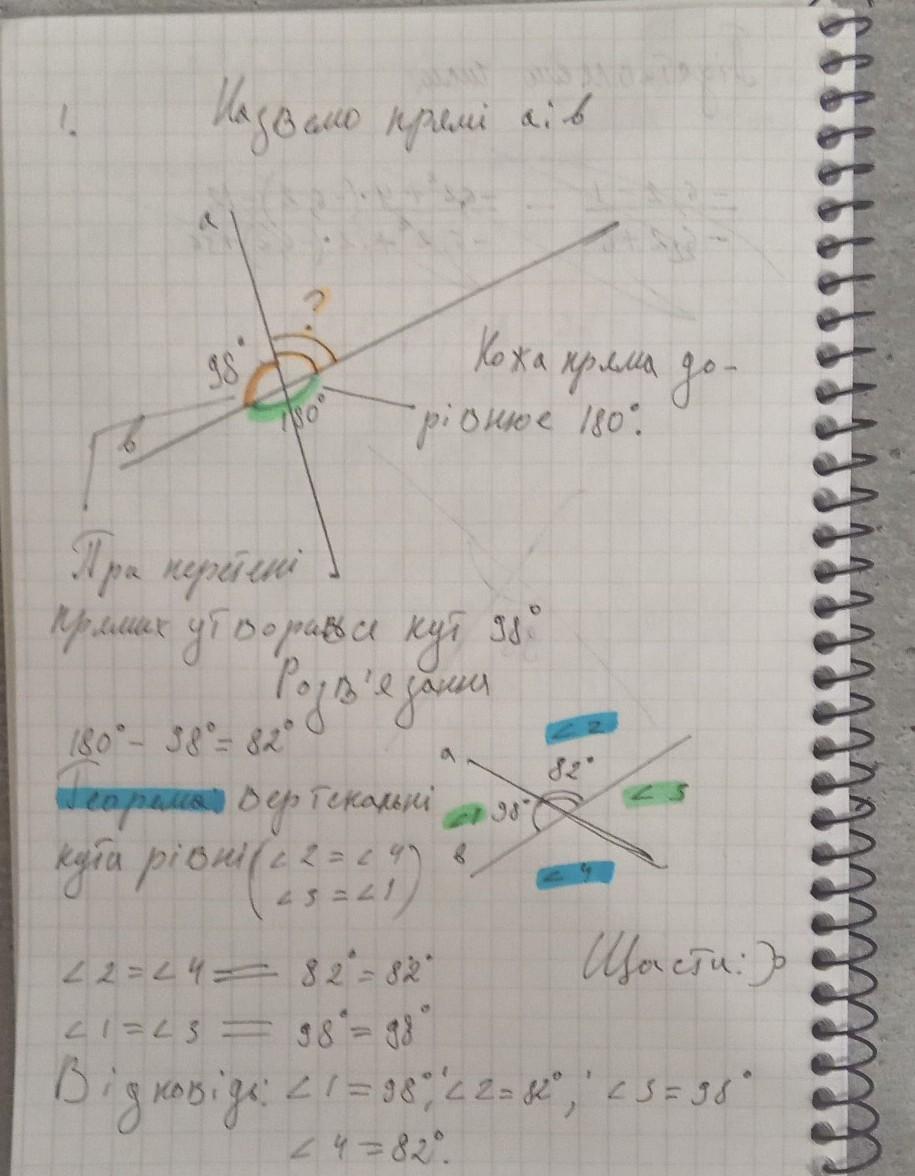 1. Назвемо прямі а і в
а
?
98°
180°
в
Кожа пряма до-
рівнює 180°.
При перетені
прямих утворався кут 98°
Розв'язання
180° - 98° = 82°
Теорема: Вертекальні
кута рівні (∠2 = ∠4
∠3 = ∠1)
∠2
а
82°
∠1 98°
∠3
в
∠4
∠2 = ∠4 = 82° = 82°
Щасти:)
∠1 = ∠3 = 98° = 98°
Відповідь: ∠1 = 98°; ∠2 = 82°; ∠3 = 98°
∠4 = 82°.